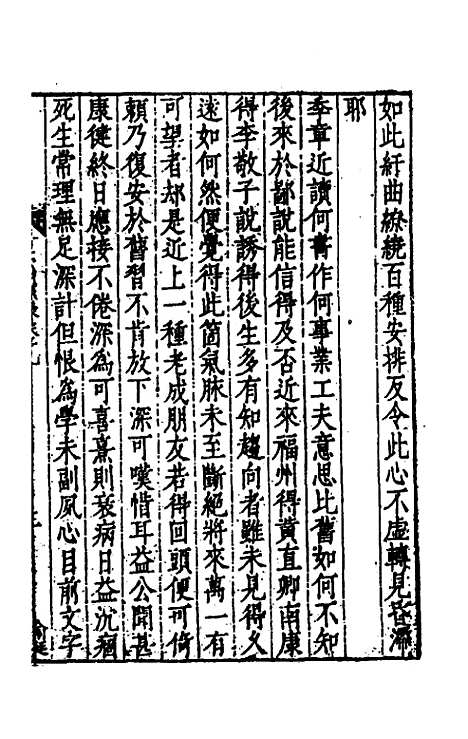 如此紆曲繚繞百種安排反令此心不虛轉見昏滯
耶
季章近讀何書作何事業工夫意思比舊如何不知
後來於鄙說能信得及否近來福州得黃直卿南康
得李敬子說誘得後生多有知趨向者雖未見得久
遠如何然便覺得此箇氣脉未至斷絕將來萬一有
可望者却是近上一種老成朋友若得回頭便可倚
賴乃復安於舊習不肯放下深可嘆惜耳益公聞甚
康健終日應接不倦深為可喜熹則衰病日益沉痼
死生常理無足深計但恨為學未副夙心目前文字